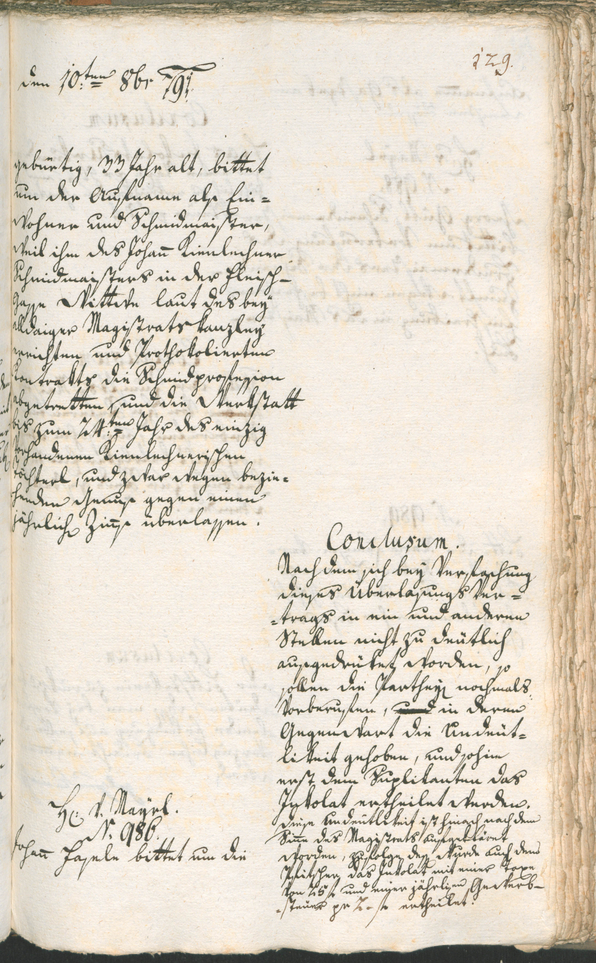 129.
den 10.ten 8br 791.
gebürtig, 33 Jahr alt, bittet
um die Aufname als Ein=
wohner und Schmidmaister,
weil ihm des Johann Kienlechner
Schmidmaisters in der Fleisch=
gasse Wittwe laut des bey
alldaiger Magistratskanzley
errichten und Prothokolierten
Kontrakts die Schmidprofession
abgetretten, und die Werkstatt
bis zum 24.ten Jahr des einzig
vorhandenen Kienlechnerischen
Töchterl, und zwar wegen bezie=
henden Genuß gegen einen
jährlich Zinse überlassen.
Conclusum.
Nachdem sich bey Verfachung
dieses Überlasungs Ver=
=trags in ein und anderen
Stellen nicht zu deütlich
ausgedrücket worden, so
sollen die Partheyen nochmals
Vorberufen, in deren
Gegenwart die Undeüt=
likeit gehoben, und sohin
erst dem Suplikanten das
Inkolat ertheilet werden.
diese Undeutlikeit ist hinach nach dem
Sinne des Magistrats aufgekläret
worden, zufolge dessen wurde auch dem
das Inkolat mit einer Taxe
von 25 f und einer jährlichen Gewerb=
=steuer pr 2 f ertheilet.
H: v. Mayrl.
N: 986.
Johann Fasele bittet um die